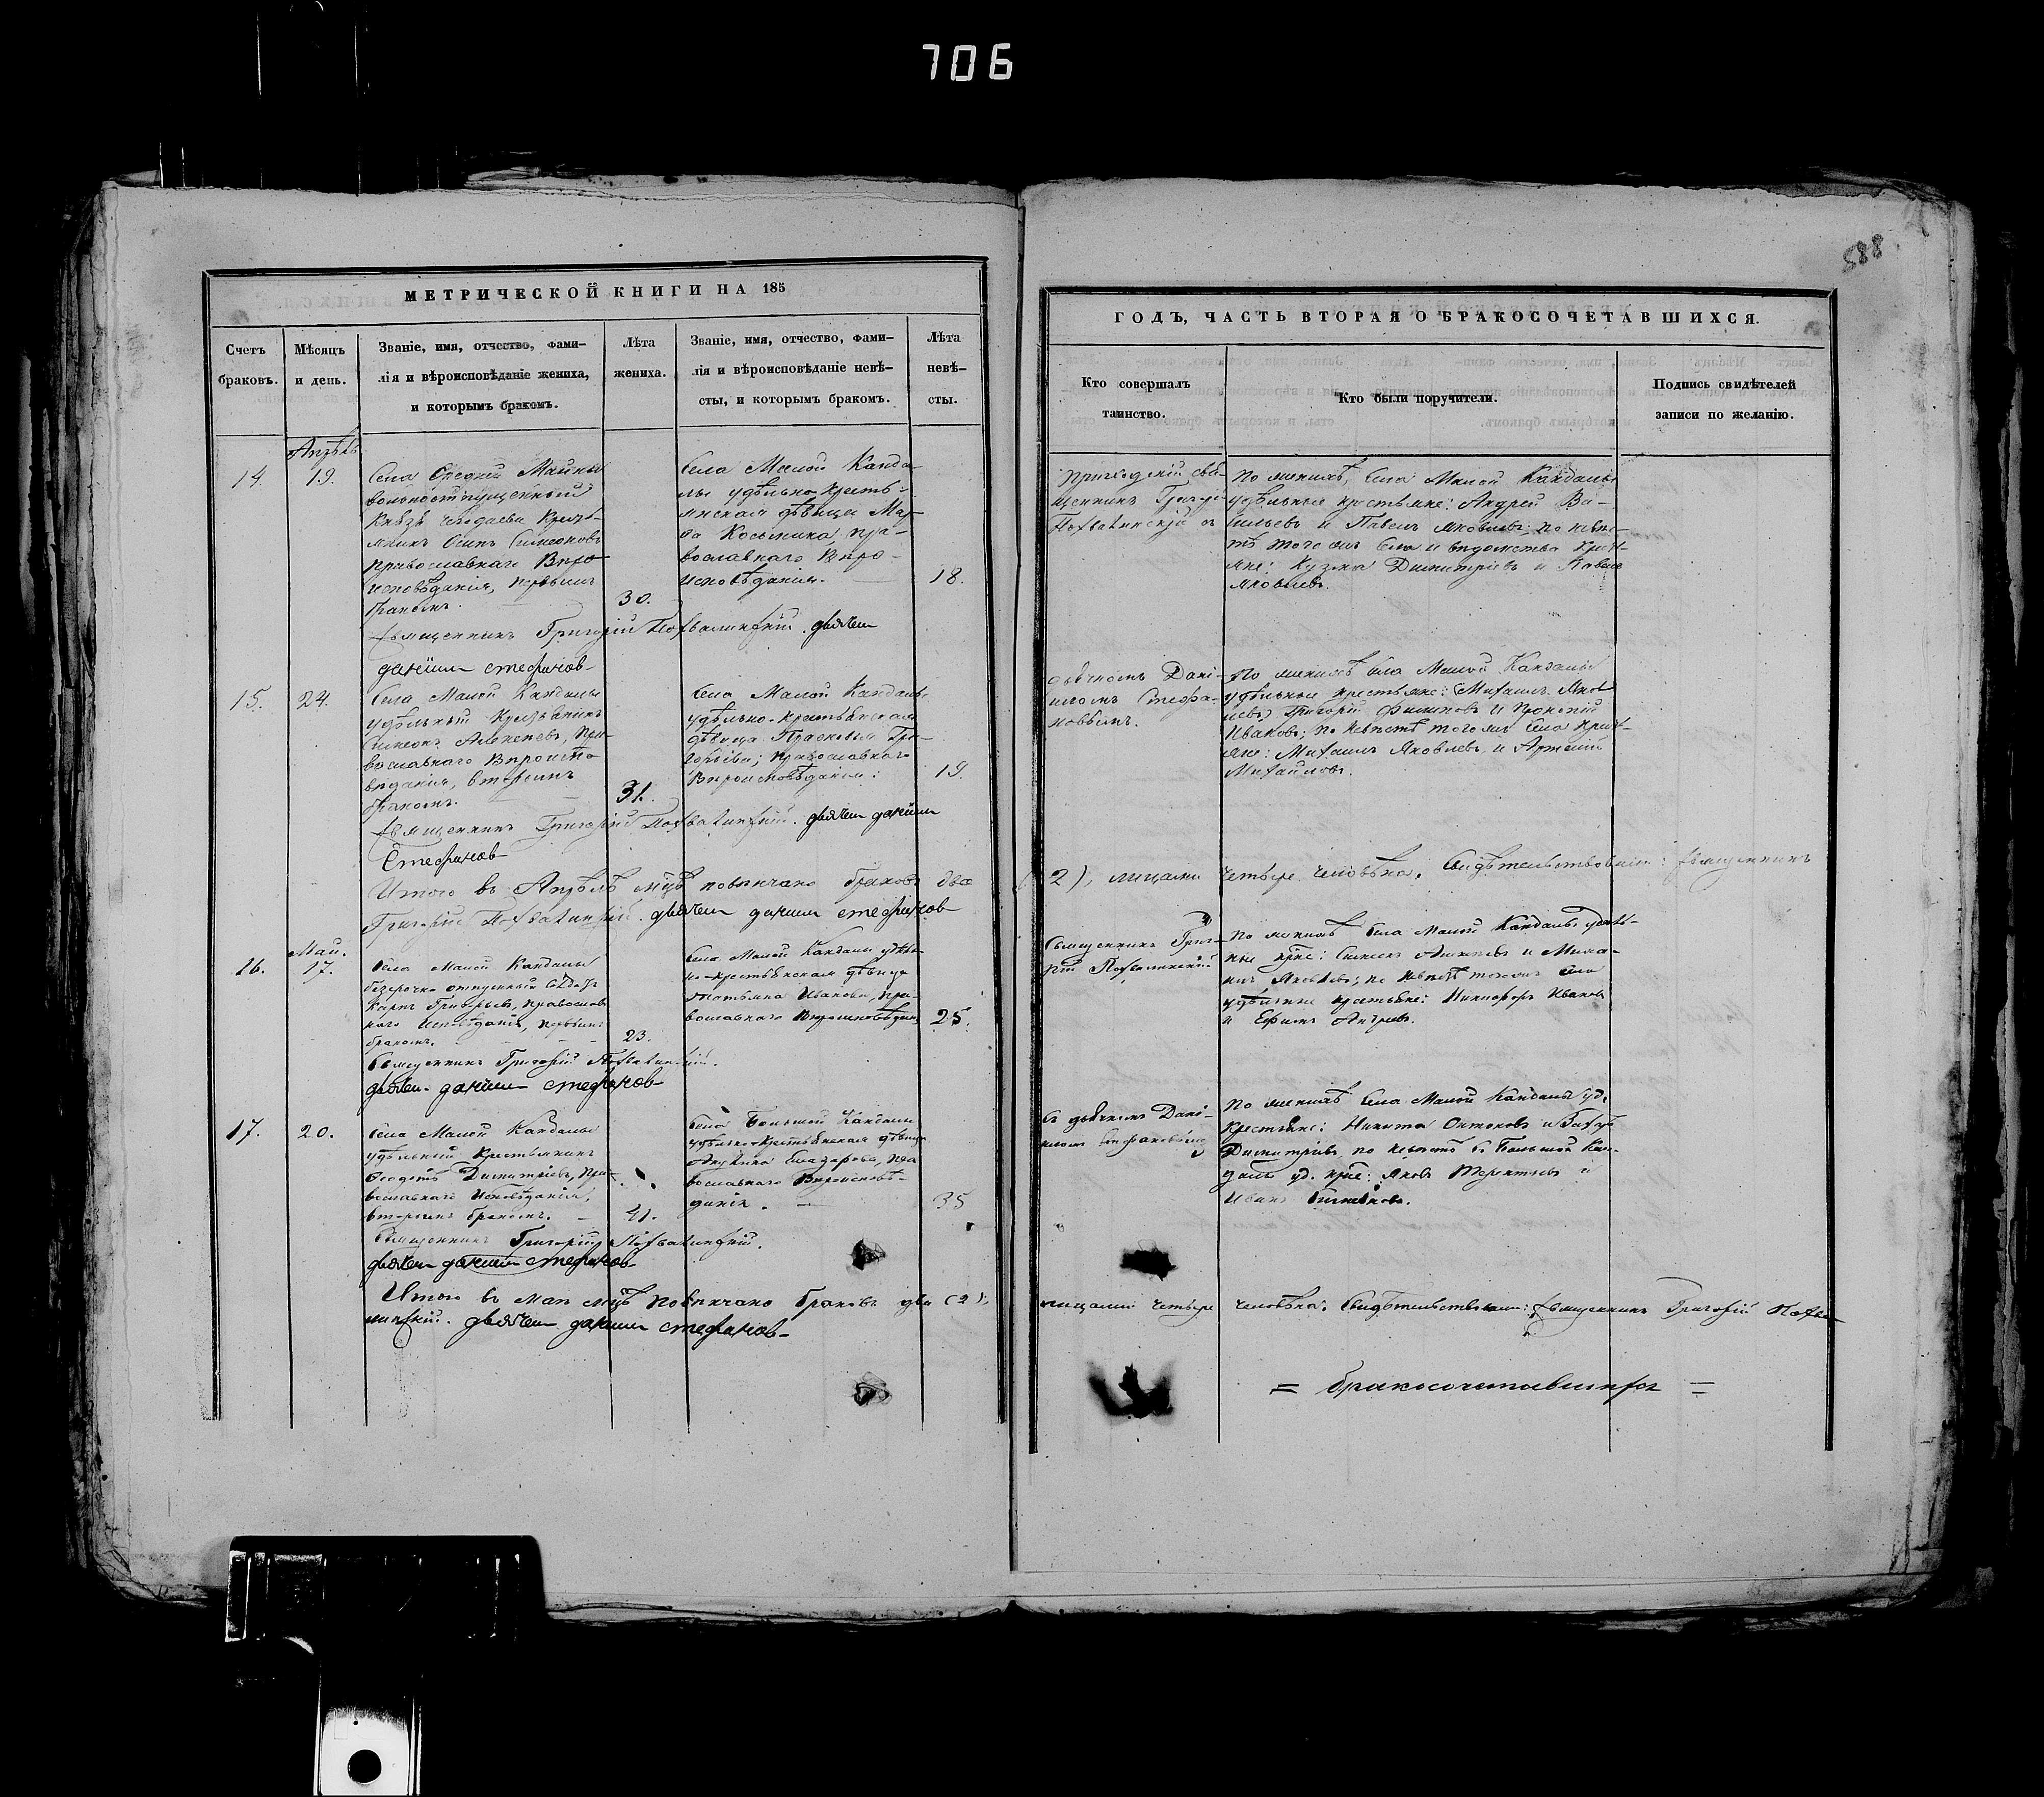 706
588
МЕТРИЧЕСКОЙ КНИГИ НА 185
Счетъ браковъ.
Мѣсяцъ и день.
Званіе, имя, отчество, фами-
лія и вѣроисповѣданіе жениха,
и которымъ бракомъ.
Лѣта
жениха.
Званіе, имя, отчество, фами-
лія и вѣроисповѣданіе невѣ-
сты, и которымъ бракомъ.
Лѣта
невѣ-
сты.
Апрѣль
14.
19.
Села Средней Майны
вольноотпущенный
Князя крестья-
нинъ Осипъ Симеоновъ
православнаго Вѣро
исповѣданія, первымъ
бракомъ.
30.
Села Малой Канда-
лы удѣльно-кресть-
янская дѣвица Мар-
ѳа Косьмина, пра-
вославнаго Вѣро-
исповѣданія.
18.
Священникъ Григорій Похвалинскій. дьячекъ
данiилъ стефановъ
15.
24.
Села Малой Кандалы
удѣльный крестьянинъ
Симеонъ Алексѣевъ, пра-
вославнаго Вѣроиспо
вѣданія, вторымъ
бракомъ.
31.
Села Малой Кандалы
удѣльно-крестьянская
дѣвица Прасковья Гри-
горьева; православнаго
Вѣроисповѣданія:
19.
Священникъ Григорій Похвалинскій. дьячекъ данiилъ
Стефановъ
Итого въ Апрѣлѣ мцѣ повѣнчано браковъ два
Григорій Похвалинскій. дьячекъ данiилъ стефановъ
Май.
16.
17.
Села Малой Кандалы
безсрочно отпускный солдатъ
Карпъ Григорьевъ, православ
наго Исповѣданія, первымъ
бракомъ.
23.
Села Малой Кандалы удѣль-
но-крестьянская дѣвица
Татьяна Иванова, пра-
вославнаго Вѣроисповѣдан.
25.
Священникъ Григорій Похвалинскій.
дьячекъ данiилъ стефановъ
17.
20.
Села Малой Кандалы
удѣльный Крестьянинъ
Ѳеодотъ Димитріевъ, пра-
вославнаго Исповѣданія,
вторымъ бракомъ.
41.
Села Большой Кандалы
удѣльно-крестьянская дѣвица
Акулина Елазарова, пра
вославнаго Вѣроисповѣ-
данія.
35
Священникъ Григорій Похвалинскій.
дьячекъ данiилъ стефановъ
Итого въ маѣ мцѣ повѣнчано браковъ два (2),
линскій. дьячекъ данiилъ стефановъ
ГОДЪ, ЧАСТЬ ВТОРАЯ О БРАКОСОЧЕТАВШИХСЯ.
Кто совершалъ
таинство.
Кто были поручители.
Подпись свидѣтелей
записи по желанію.
Приходскій свя-
щенникъ Григорій
Похвалинскій съ
По женихѣ, Села Малой Кандалы
удѣльные крестьяне: Андрей Ва-
сильевъ и Павелъ Яковлевъ; по невѣс-
тѣ того же Села и вѣдомства Крест-
яне: Кузма Димитріевъ и Павелъ
Яковлевъ.
дьячкомъ Дані-
иломъ Стефа-
новымъ.
По женихѣ села Малой Кандалы
удѣльные крестьяне: Михаилъ Яков
левъ, Григорій Филиповъ и Прокопій
Ивановъ; по невѣстѣ того же Села крест-
яне: Михаилъ Яковлевъ и Артемій
Михайловъ.
(2), лицами четыре человѣка. Свидѣтельствовали: Священникъ
Священникъ Григо-
рій Похвалинскій
По женихѣ Села Малой Кандалы удѣль-
ные крне: Симеонъ и Миха-
илъ Яковлевъ; по невѣстѣ того же Села
удѣльные крестьяне: Никифоръ Ивановъ
и Ефимъ Андреевъ.
съ дьячкомъ Дані-
иломъ Стефановымъ
По женихѣ Села Малой Кандалы уд.
крестьяне: Никита Антоновъ и
Димитріевъ, по невѣстѣ с. Большой Кан-
далы уд. крне: Яковъ Терентьевъ и
Иванъ
лицами четыре человѣка. Свидѣтельствовали: Священникъ Григорій Похва-
= бракосочетавшихся =